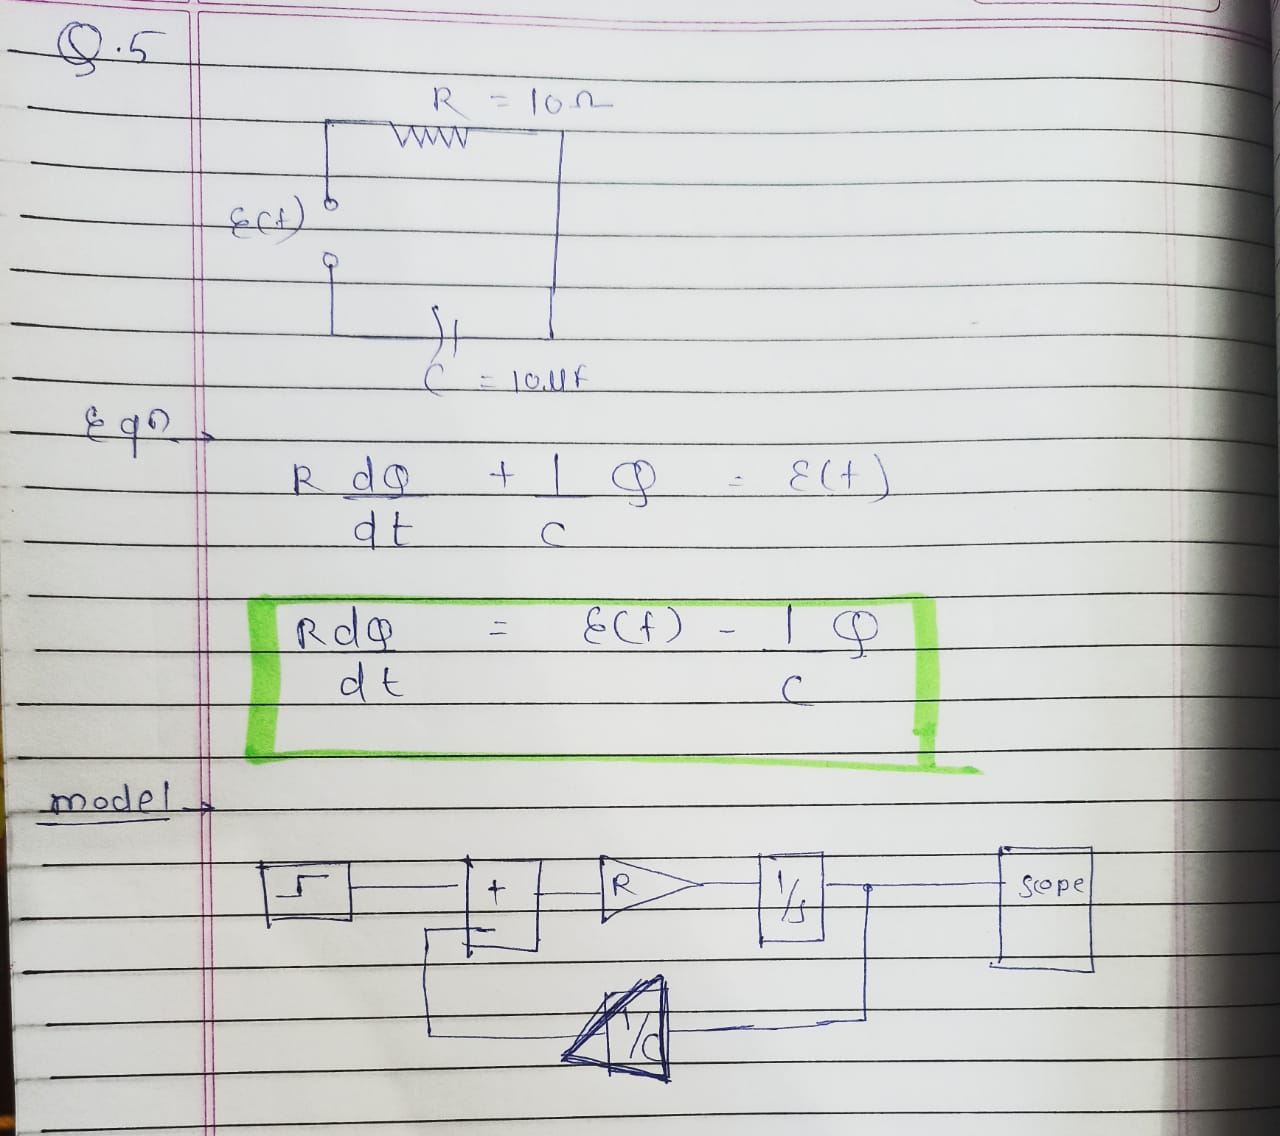 Q.5
R = 10Ω
E(t)
C = 10µF
Eqn →
R dQ/dt + 1/C Q = E(t)
R dQ/dt = E(t) - 1/C Q
model →
+ R 1/s Scope
-
1/C